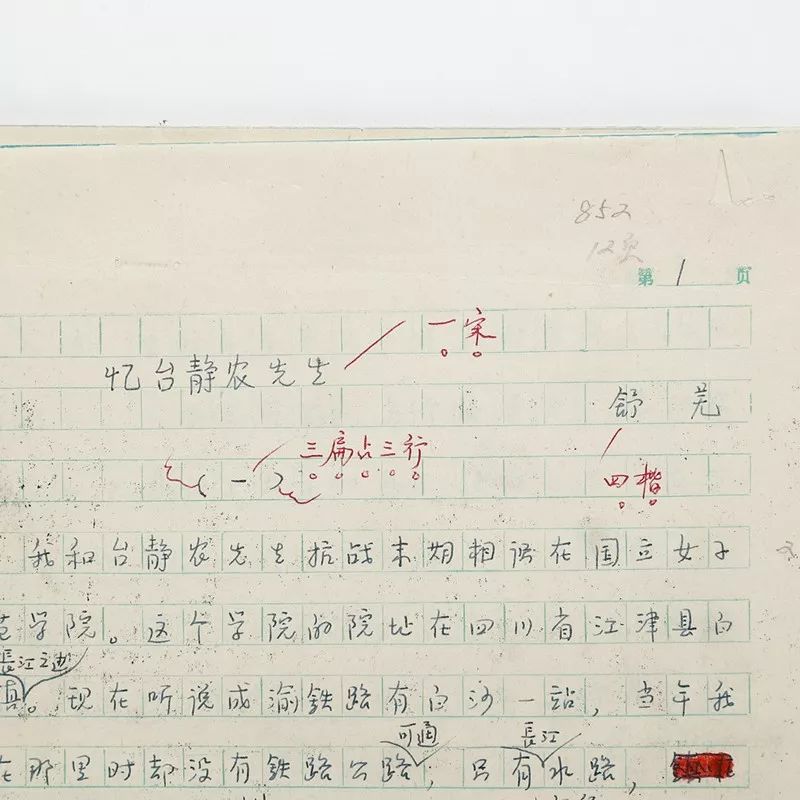 852
12页
第1页
一宋
忆台静农先生
舒芜
三扁占三行
(一)
四楷
我和台静农先生抗战末期相识在国立女子
范学院。这个学院的院址在四川省江津县白
長江之边
镇。现在听说成渝铁路有白沙一站,当年我
可通 長江
在那里时却没有铁路公路,只有水路,